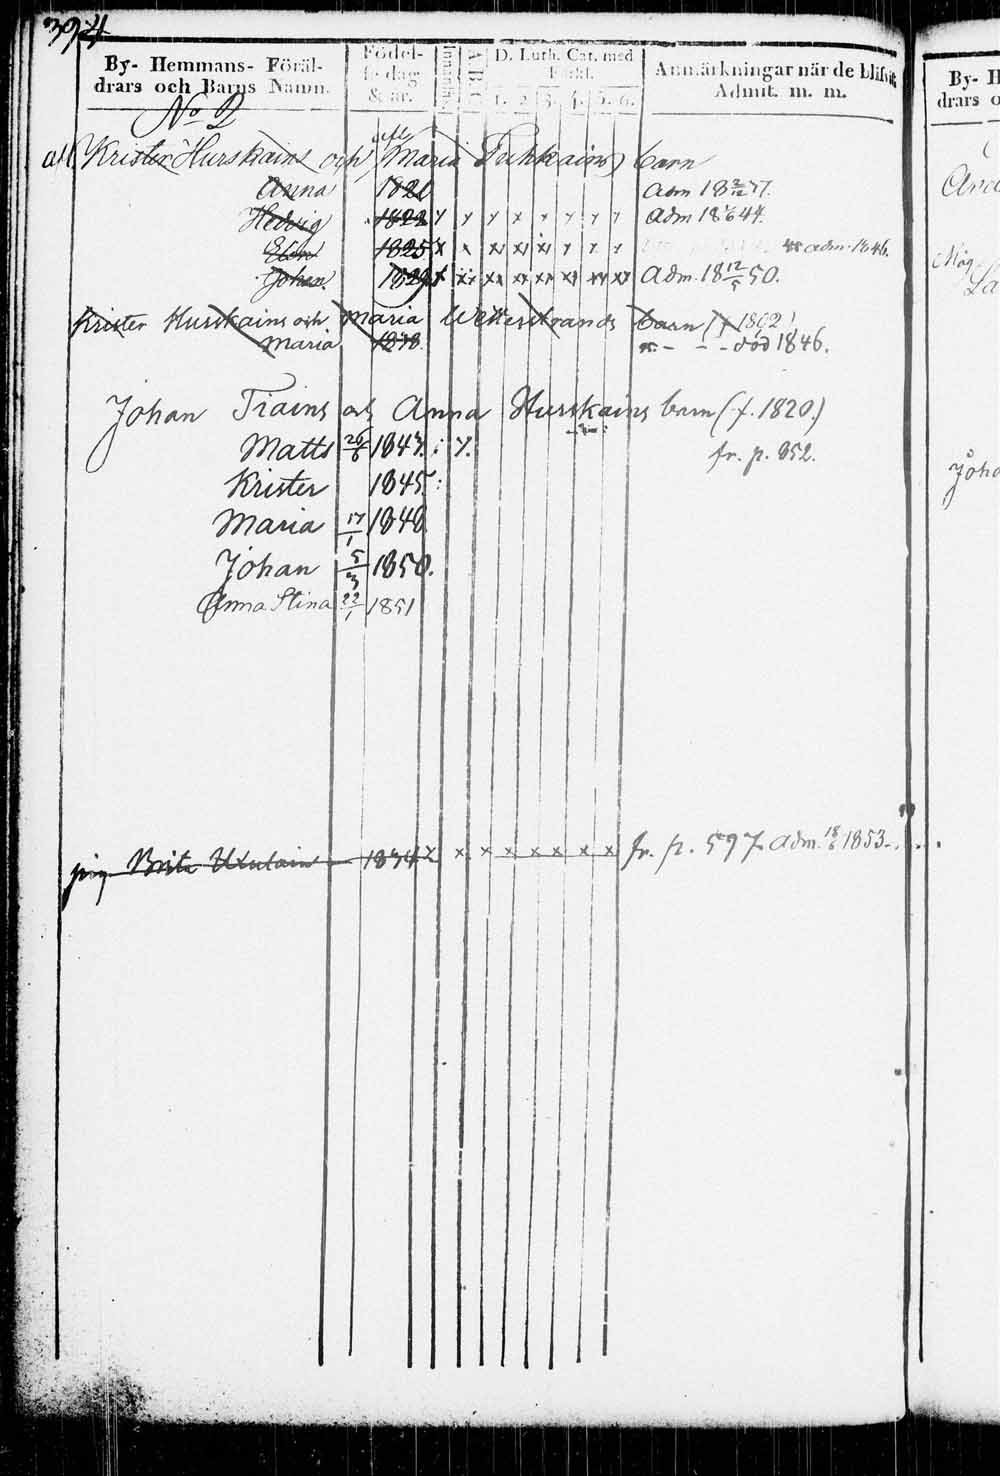 394
By- Hemmans- Föräl-
drars och Barns Namn.
Födel-
se dag
& år.
A B C
D. Luth. Cat. med
Förkl.
1. 2. 3. 4. 5. 6.
Anmärkningar när de blifvit
Admit. m. m.
No 2
afl Krister Hurskains och afl Maria Puhkains barn
Anna 1820 adm 18 2/12 37.
Hedvig 1822 x x x x x x x x adm 18 6 44.
Elin 1825 x x x x x x x x adm. 1846.
Johan 1829 x x x x x x x x Adm. 18 12/5 50.
Krister Hurskains och Maria Wetterstrands barn (f 1802)
Maria 1838. död 1846.
Johan Tiains och Anna Hurskains barn (f. 1820.)
Matts 26/6 1843. : x. fr. p. 352.
Krister 1845 :
Maria 17/1 1848
Johan 5/3 1850.
Anna Stina 22/1 1851
pig. Brita 1834 x x x x x x x x fr. p. 597 adm. 18/6 1853.
By- H
drars o
Joha